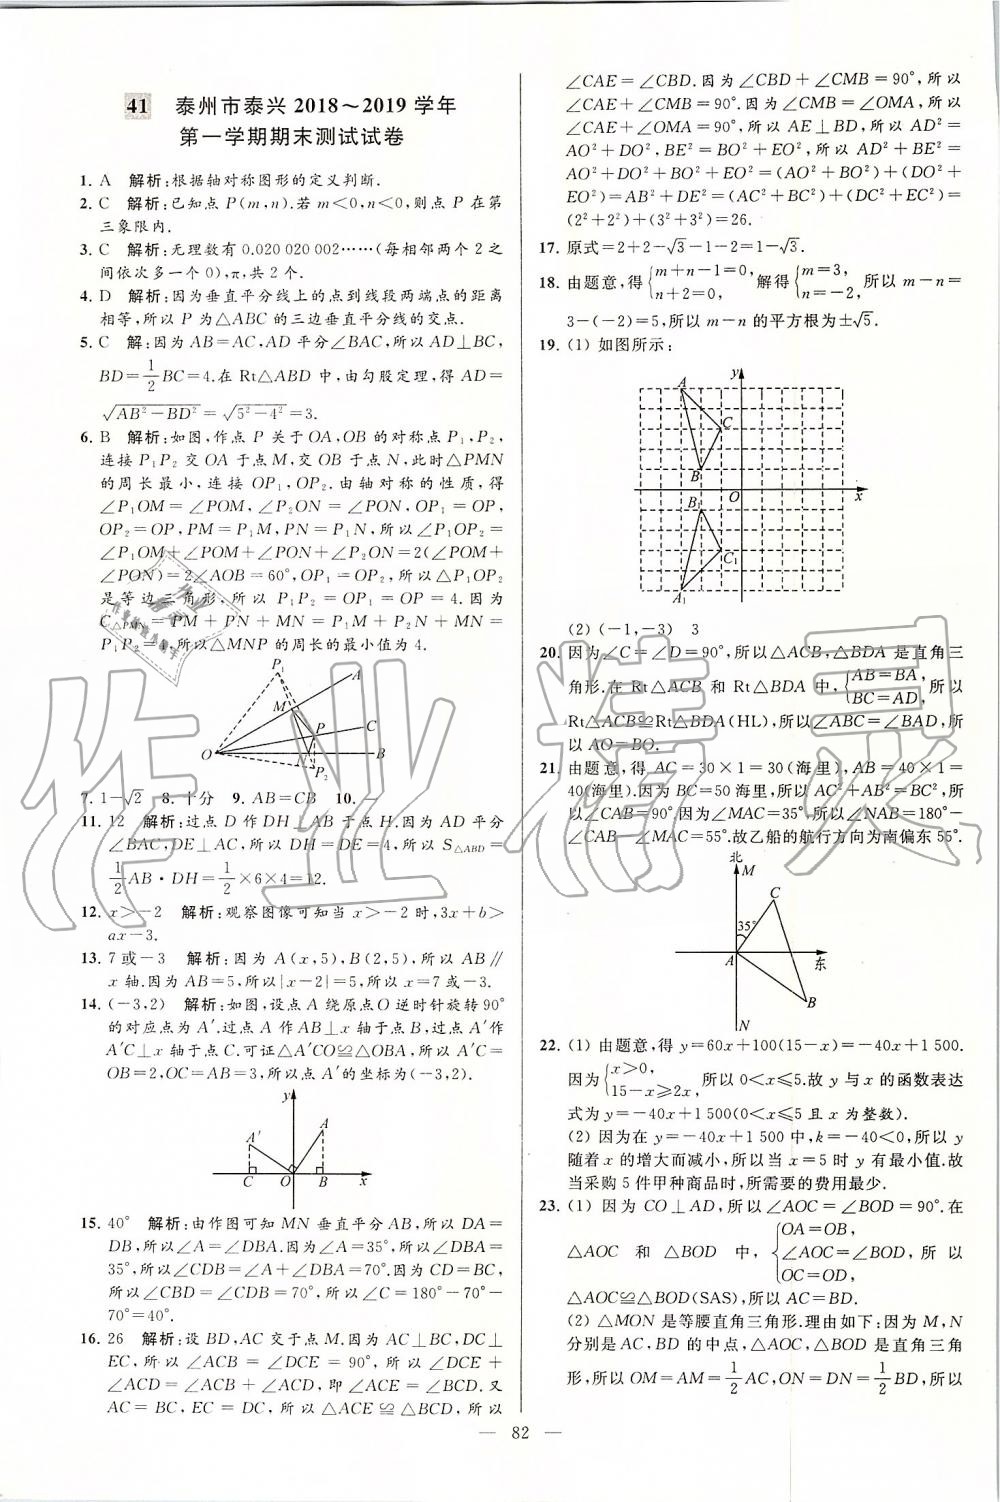 41 泰州市泰兴 2018～2019 学年
第一学期期末测试试卷
1. A 解析:根据轴对称图形的定义判断.
2. C 解析:已知点 P(m,n).若 m<0,n<0,则点 P 在第
三象限内.
3. C 解析:无理数有 0.020 020 002……(每相邻两个 2 之
间依次多一个 0),π,共 2 个.
4. D 解析:因为垂直平分线上的点到线段两端点的距离
相等,所以 P 为△ABC 的三边垂直平分线的交点.
5. C 解:因为 AB=AC,AD 平分∠BAC,所以 AD⊥BC,
BD=1/2BC=4.在 Rt△ABD 中,由勾股定理,得 AD=
√(AB²-BD²)=√(5²-4²)=3.
6. B 解析:如图,作点 P 关于 OA,OB 的对称点 P₁,P₂,
连接 P₁P₂ 交 OA 于点 M,交 OB 于点 N,此时△PMN
的周长最小,连接 OP₁,OP₂.由轴对称的性质,得
∠P₁OM=∠POM,∠P₂ON=∠PON,OP₁=OP,
OP₂=OP,PM=P₁M,PN=P₁N,所以∠P₁OP₂=
∠P₁OM+∠POM+∠PON+∠P₂ON=2(∠POM+
∠PON)=2∠AOB=60°,OP₁=OP₂=OP,△P₁OP₂
是等边三角形,所以 P₁P₂=OP₁=OP=4.因为
C△PMN=PM+PN+MN=P₁M+P₂N+MN=
P₁P₂=4,所以△MNP 的周长的最小值为 4.
P₁ A
M
P C
O B
P₂
7. 1-√2 8. 十分 9. AB=CB 10. 一
11. 12 解析:过点 D 作 DH⊥AB 于点 H.因为 AD 平分
∠BAC,DE⊥AC,所以 DH=DE=4,所以 S△ABD=
1/2AB·DH=1/2×6×4=12.
12. x>-2 解析:观察图像可知当 x>-2 时,3x+b>
ax-3.
13. 7或-3 解析:因为 A(x,5),B(2,5),所以 AB∥
x 轴.因为 AB=5,所以|x-2|=5,所以 x=7 或-3.
14. (-3,2) 解析:如图,设点 A 绕原点O 逆时针旋转90°
的对应点为 A′.过点 A 作 AB⊥x 轴于点 B,过点 A′作
A′C⊥x 轴于点 C.可证△A′CO≌△OBA,所以 A′C=
OB=2,OC=AB=3,所以点 A′的坐标为(-3,2).
y
A′ A
C O B x
15. 40° 解析:由作图可知 MN 垂直平分 AB,所以 DA=
DB,所以∠A=∠DBA.因为∠A=35°,所以∠DBA=
35°,所以∠CDB=∠A+∠DBA=70°.因为 CD=BC,
所以∠CBD=∠CDB=70°,所以∠C=180°-70°-
70°=40°.
16. 26 解析:设 BD,AC 交于点 M.因为 AC⊥BC,DC⊥
EC,所以∠ACB=∠DCE=90°,所以∠DCE+
∠ACD=∠ACB+∠ACD,即∠ACE=∠BCD.又
AC=BC,EC=DC,所以△ACE≌△BCD,所以
∠CAE=∠CBD.因为∠CBD+∠CMB=90°,所以
∠CAE+∠CMB=90°.因为∠CMB=∠OMA,所以
∠CAE+∠OMA=90°,所以 AE⊥BD,所以 AD²=
AO²+DO²,BE²=BO²+EO²,所以 AD²+BE²=
AO²+DO²+BO²+EO²=(AO²+BO²)+(DO²+
EO²)=AB²+DE²=(AC²+BC²)+(DC²+EC²)=
(2²+2²)+(3²+3²)=26.
17. 原式=2+2-√3-1-2=1-√3.
18. 由题意,得{m+n-1=0, n+2=0, 解得{m=3, n=-2, 所以 m-n=
3-(-2)=5,所以 m-n 的平方根为±√5.
19. (1) 如图所示:
A y
C
B
O x
B₁
C₁
A₁
(2) (-1,-3) 3
20. 因为∠C=∠D=90°,所以△ACB,△BDA 是直角三
角形.在 Rt△ACB 和 Rt△BDA 中,{AB=BA, BC=AD, 所以
Rt△ACB≌Rt△BDA(HL),所以∠ABC=∠BAD,所
以 AO=BO.
21. 由题意,得 AC=30×1=30(海里),AB=40×1=
40(海里).因为 BC=50 海里,所以 AC²+AB²=BC²,所
以∠CAB=90°.因为∠MAC=35°,所以∠NAB=180°-
∠CAB-∠MAC=55°.故乙船的航行方向为南偏东 55°.
北 M
C
35°
A 东
B
N
22. (1) 由题意,得 y=60x+100(15-x)=-40x+1 500.
因为{x>0, 15-x≥2x, 所以 0<x≤5.故 y 与 x 的函数表达
式为 y=-40x+1 500(0<x≤5 且 x 为整数).
(2) 因为在 y=-40x+1 500 中,k=-40<0,所以 y
随着 x 的增大而减小,所以当 x=5 时 y 有最小值.故
当采购 5 件甲种商品时,所需要的费用最少.
23. (1) 因为 CO⊥AD,所以∠AOC=∠BOD=90°.在
△AOC 和△BOD 中,{OA=OB, ∠AOC=∠BOD, OC=OD, 所以
△AOC≌△BOD(SAS),所以 AC=BD.
(2) △MON 是等腰直角三角形.理由如下:因为 M,N
分别是 AC,BD 的中点,△AOC,△BOD 是直角三角
形,所以 OM=AM=1/2AC,ON=DN=1/2BD,所以
— 82 —
作业精灵